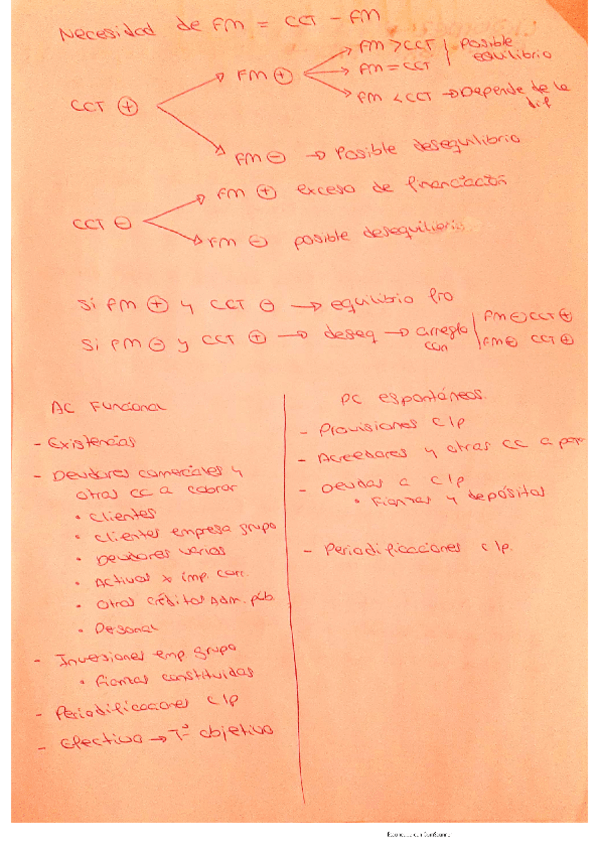 Necesidad de FM = CCT - FM
CCT ⊕
FM ⊕
FM > CCT | Posible equilibrio
FM = CCT
FM < CCT → Depende de la dif
FM ⊖ → Posible desequilibrio
CCT ⊖
FM ⊕ exceso de financiación
FM ⊖ posible desequilibrio
Si FM ⊕ y CCT ⊖ → equilibrio fro
Si FM ⊖ y CCT ⊕ → deseq → arreglo con | FM ⊖ CCT ⊕
FM ⊖ CCT ⊕
AC Funcional
- Existencias
- Deudores comerciales y
otras CC a cobrar
• Clientes
• Clientes empresa grupo
• Deudores varios
• Activos x imp. corr.
• Otros créditos Adm. púb.
• Personal
- Inversiones emp grupo
• Fianzas constituidas
- Periodificaciones c/p
- Efectivo → Tª objetivo
PC espontáneos.
- Provisiones c/p
- Acreedores y otras CC a pag
- Deudas a c/p
• Fianzas y depósitos
- Periodificaciones c/p.